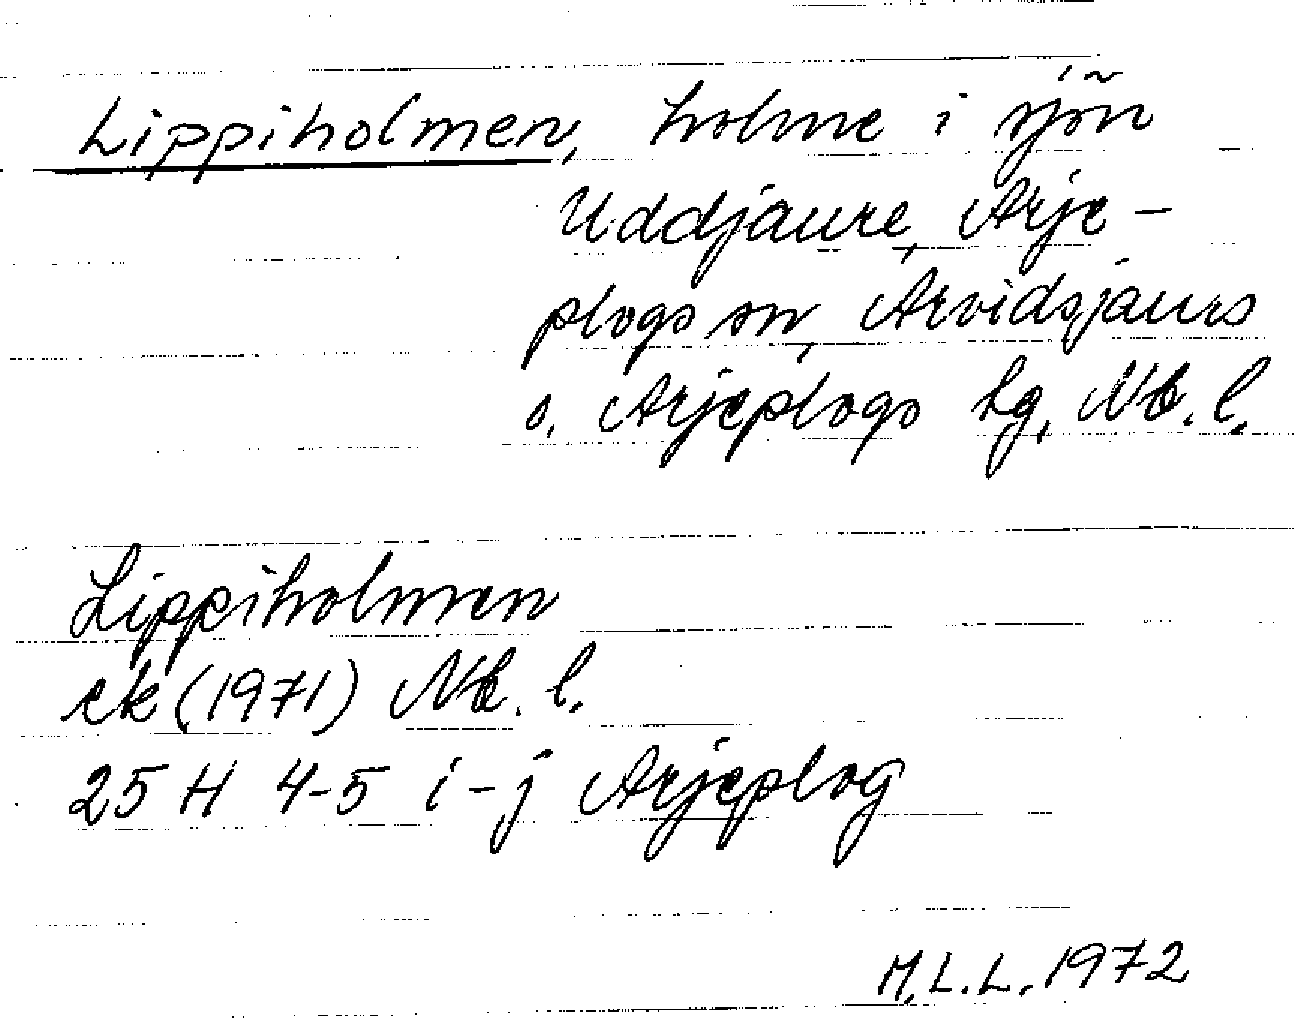 Lippiholmen, holme i sjön
Uddjaure, Arje-
plogs sn, Arvidsjaurs
o. Arjeplogs tg, Nb. l.
Lippiholmen
ek (1971) Nb. l.
25 H 4-5 i-j Arjeplog
M.L.L. 1972